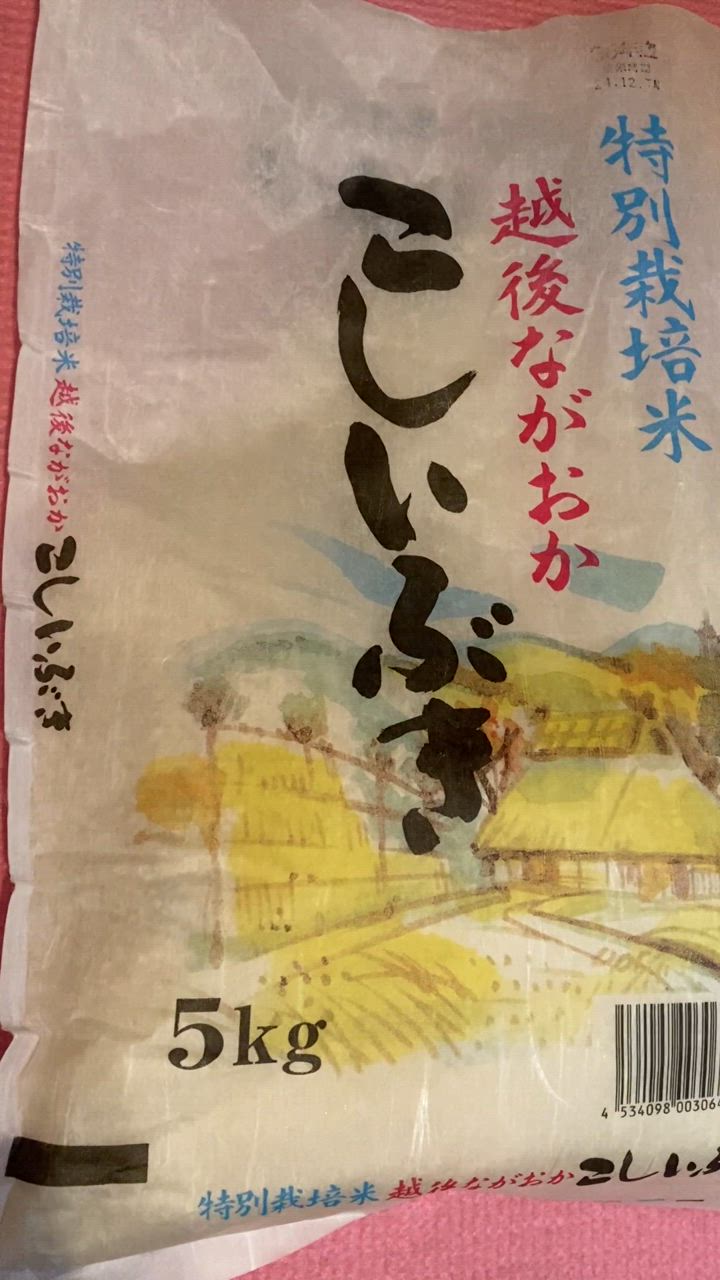 特別栽培米
越後ながおか
こしいぶき
特別栽培米 越後ながおか こしいぶき
5kg
4 534098 00306
特別栽培米 越後ながおか こしい